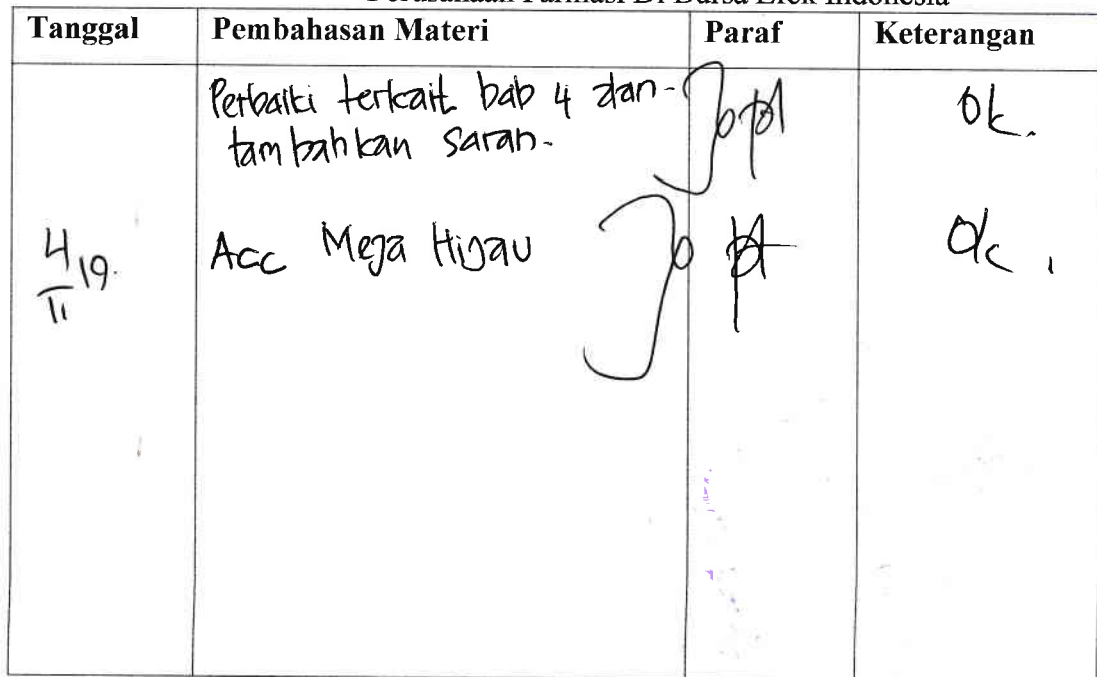 Perusahaan Farmasi Di Bursa Efek Indonesia
Tanggal Pembahasan Materi Paraf Keterangan
Perbaiki terkait bab 4 dan-
tambahkan saran. Ok.
4/11 19. Acc Meja Hijau Ok.